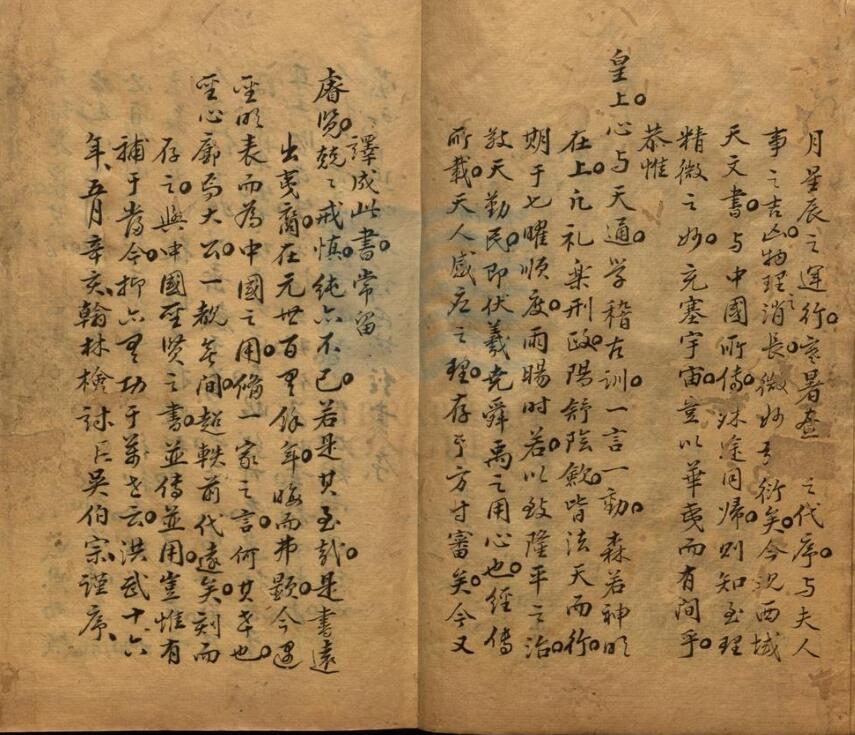 月星辰之運行。寒暑晝 之代序。与夫人
事之吉凶。物理之消長。微妙弘衍矣。今况西域
天文書。与中國所傳殊途同帰。則知至理
精微之妙。充塞宇宙。豈以華夷而有间乎。
恭惟
皇上。心与天通。学稽古訓。一言一動。森若神明
在上。凢礼楽刑政。陽舒陰歛。皆法天而行。
期于七曜順度。雨暘時若。以致隆平之治。
敬天勤民。即伏羲尭舜禹之用心也。經傳
所載。天人感应之理。存乎方寸審矣。今又
譯成此書。常留
睿覧。兢〻戒慎。純亦不已。若是其至哉。是書遠
出夷裔。在元世百有餘年。晦而弗顕。今遇
聖明表而為中國之用。俻一家之言。何其幸也。
聖心廓焉大公。一視無间。超軼前代遠矣。刻而
存之。與中國聖賢之書。並傳並用。豈惟有
補于當今。抑亦有功于萬世云。洪武十六
年、五月辛亥、翰林檢討臣吳伯宗謹序、